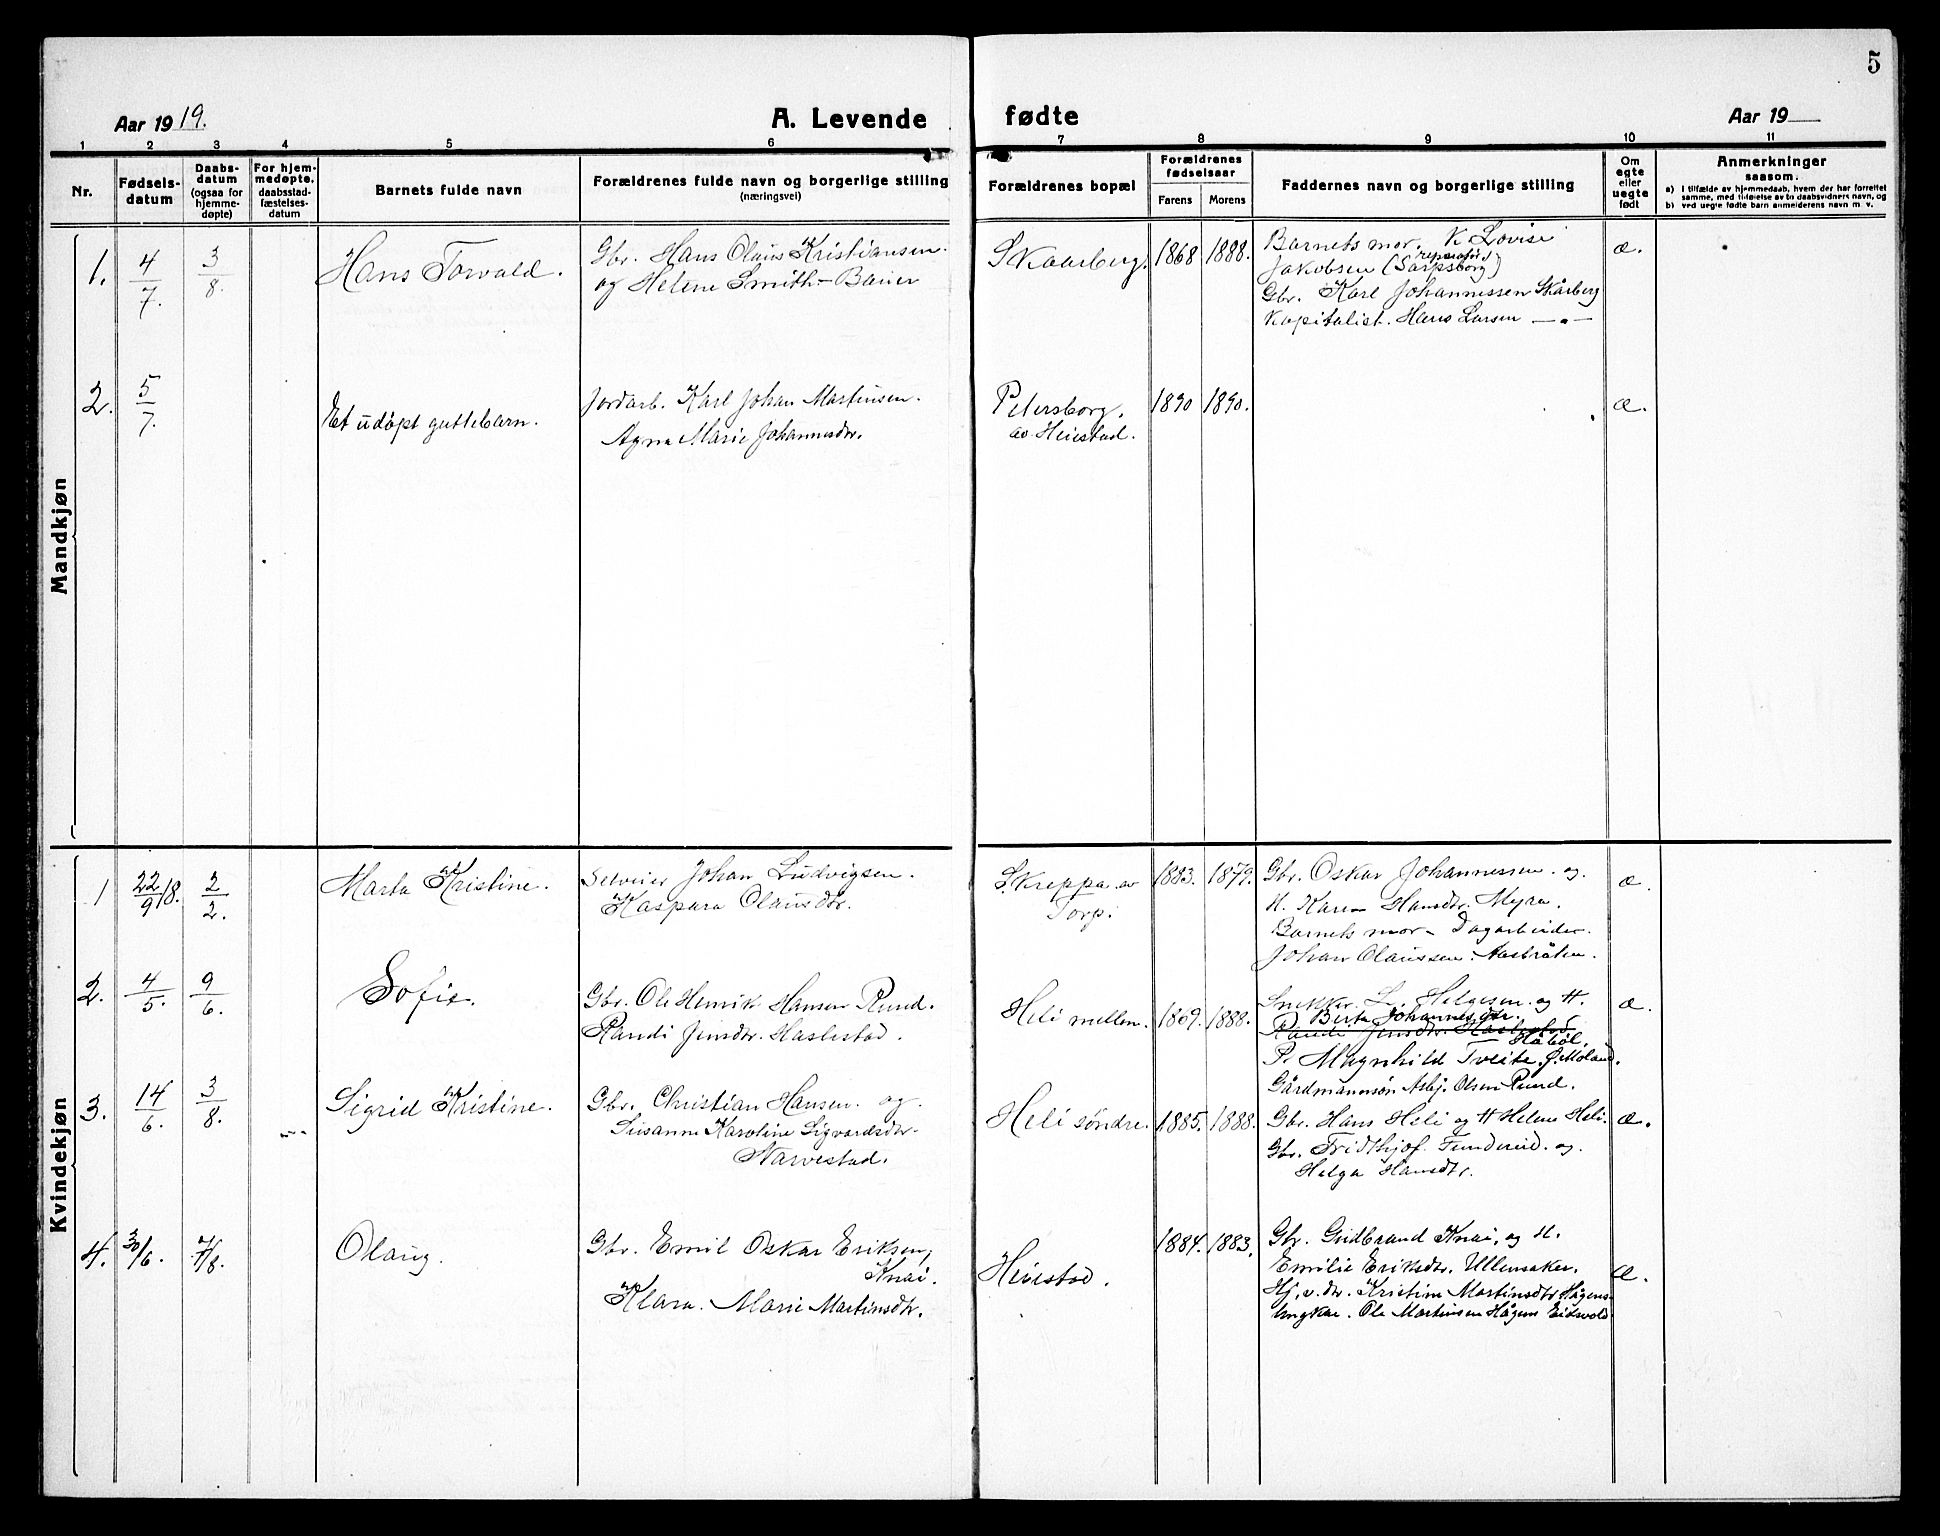 5
Aar 1919.
A. Levende
fødte
Aar 19
1 2 3 4 5 6 7 8 9 10 11
Nr.
Fødsels-
datum
Daabs-
datum
(ogsaa for
hjemme-
døpte)
For hjem-
medøpte.
daabsstad-
fæstelses-
datum
Barnets fulde navn
Forældrenes fulde navn og borgerlige stilling
(næringsvei)
Forældrenes bopæl
Forældrenes
fødselsaar
Farens Morens
Faddernes navn og borgerlige stilling
Om
egte
eller
uegte
født
Anmerkninger
saasom:
a) I tilfælde av hjemmedaab, hvem der har forrettet
samme, med tilføielse av to daabsvidners navn, og
b) ved uegte fødte barn anmelderens navn m. v.
Mandkjøn
1. 4/7. 3/8. Hans Torvald.
Gbr. Hans Olaus Kristiansen.
og Helene Smith-Bauer
Skaarberg. 1868 1888.
Barnets mor. K Lovise
Jakobsen (Sarpsborg)
Gbr. Karl Johannessen Skårberg
Kapitalist. Hans Larsen —„—
æ.
2. 5/7. Et udøpt guttebarn.
Jordarb. Karl Johan Martinsen.
Agna Marie Johannesdtr.
Petersborg.
av Heiestad.
1890 1890.
æ.
Kvindekjøn
1 22/9 18. 2/2. Marta Kristine.
Selveier Johan Ludvigsen.
Kaspara Olausdtr.
Skreppa av
Torp.
1883. 1879.
Gbr. Oskar Johannessen. og
H. Karen Hansdtr. Myra.
Barnets mor - Dagarbeider.
Johan Olaussen. Aasbråten.
æ.
2. 4/5. 9/6. Sofie.
Gbr. Ole Henrik Hansen Rund.
Randi Jensdtr. Haslestad.
Heli mellem. 1869. 1888.
Snekker. L. Helgesen. og H.
Berta Johannesdtr.
Randi Jensdtr. Haslestad
Håbøl.
P. Magnhild Tveite, Ø. Moland.
Gårdmannsøn Asbj. Olsen Rund.
æ.
3. 14/6. 3/8. Sigrid Kristine.
Gbr. Christian Hansen. og
Susanne Karoline Sigvardsdtr.
Narvestad.
Heli søndre. 1885. 1888.
Gbr. Hans Heli og H Helene Heli.
Gbr. Fridthjof Tundereid. og
Helga Hansdtr.
æ.
4. 30/6. 7/8. Olaug.
Gbr. Emil Oskar Eriksen,
Knai.
Klara. Marie Martinsdtr.
Heiestad. 1884. 1883.
Gbr. Gudbrand Knai, og H.
Emilie Eriksdtr. Ullensaker.
Hj. v. dtr. Kristine Martinsdtr Hågens
Ungkar. Ole Martinsen Hågens Eidsvold.
æ.